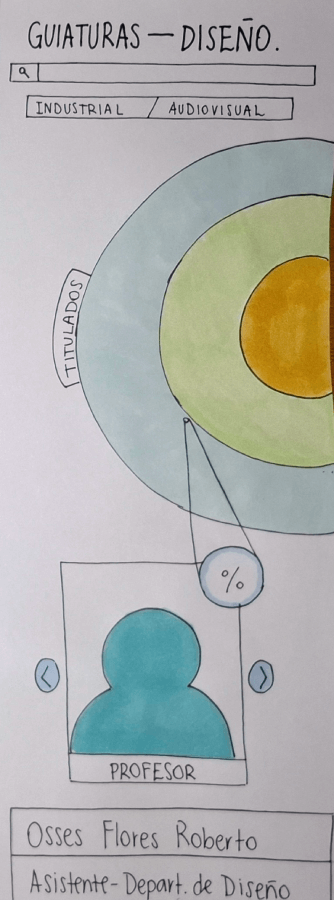 GUIATURAS — DISEÑO.
INDUSTRIAL / AUDIOVISUAL
TITULADOS
%
PROFESOR
Osses Flores Roberto
Asistente - Depart. de Diseño